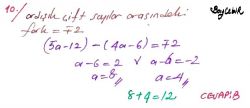 10-) ardışık çift sayılar arasındaki
fark = ∓2
(5a-12) - (4a-6) = ∓2
a-6=2 v a-6=-2
a=8 a=4
8+4=12 CEVAP:B